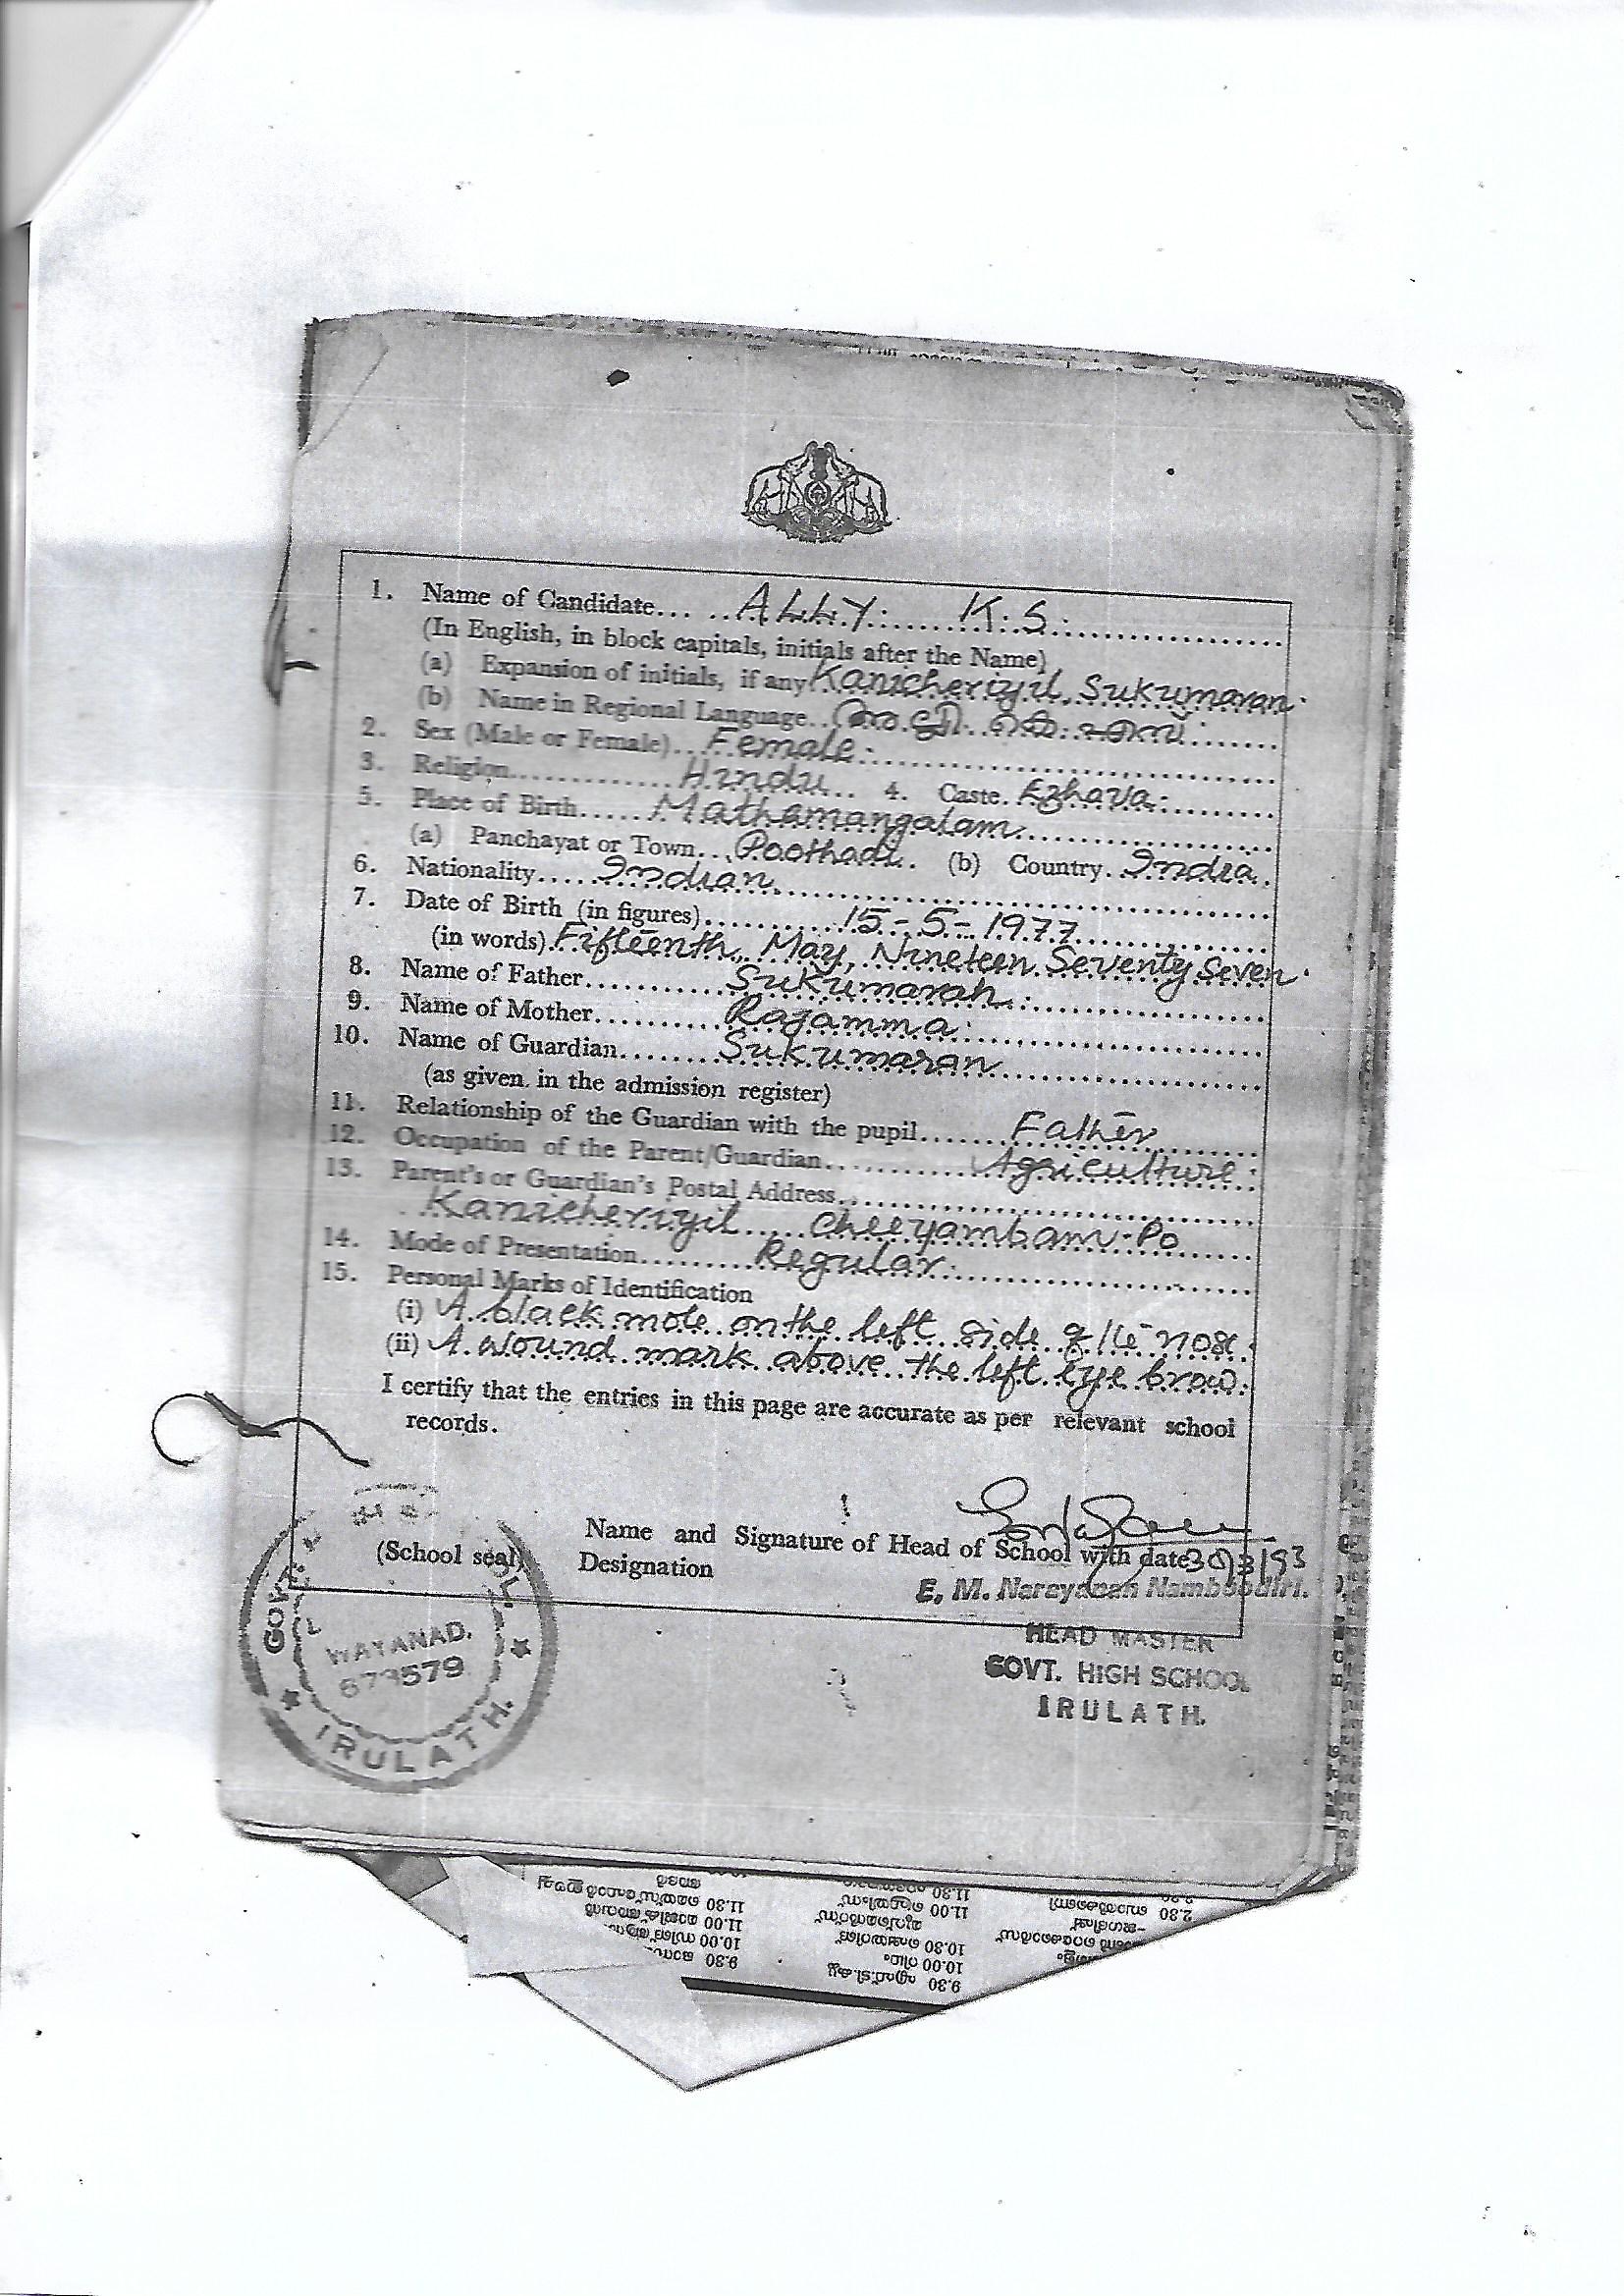 1. Name of Candidate... ..ALLY. K.S.
(In English, in block capitals, initials after the Name)
(a) Expansion of initials, if any Kanicheriyil, Sukumaran.
(b) Name in Regional Language..
2. Sex (Male or Female)...Female.
3. Religion............Hindu.. 4. Caste. Ezhava.
5. Place of Birth.....Mathamangalam
(a) Panchayat or Town...Poothadi.. (b) Country. India.
6. Nationality.....Indian
7. Date of Birth (in figures)..........15-5-1977
(in words).Fifteenth, May, Nineteen Seventy Seven.
8. Name of Father..........Sukumaran.
9. Name of Mother.........Rajamma.
10. Name of Guardian........Sukumaran
(as given in the admission register)
11. Relationship of the Guardian with the pupil.......Father
12. Occupation of the Parent/Guardian............Agriculture.
13. Parent's or Guardian's Postal Address
Kanicheriyil.....Cheeyambam-Po
14. Mode of Presentation.........Regular.
15. Personal Marks of Identification
(i) A black mole on the left side of the nose.
(ii) A wound mark above the left eye brow.
I certify that the entries in this page are accurate as per relevant school
records.
Name and Signature of Head of School with date 30/3/93
(School seal)
Designation
E. M. Narayanan Namboodiri.
HEAD MASTER
GOVT. HIGH SCHOOL
IRULATH.
GOVT.
WAYANAD.
673579
IRULATH.